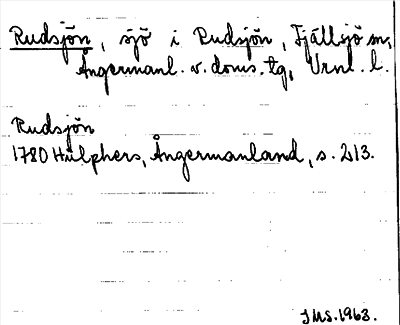 Rudsjön, sjö i Rudsjön, Fjällsjö sn,
Ångermanl. v. doms. tg, Vrnl. l.
Rudsjön
1780 Hülphers, Ångermanland, s. 213.
IMS. 1963.